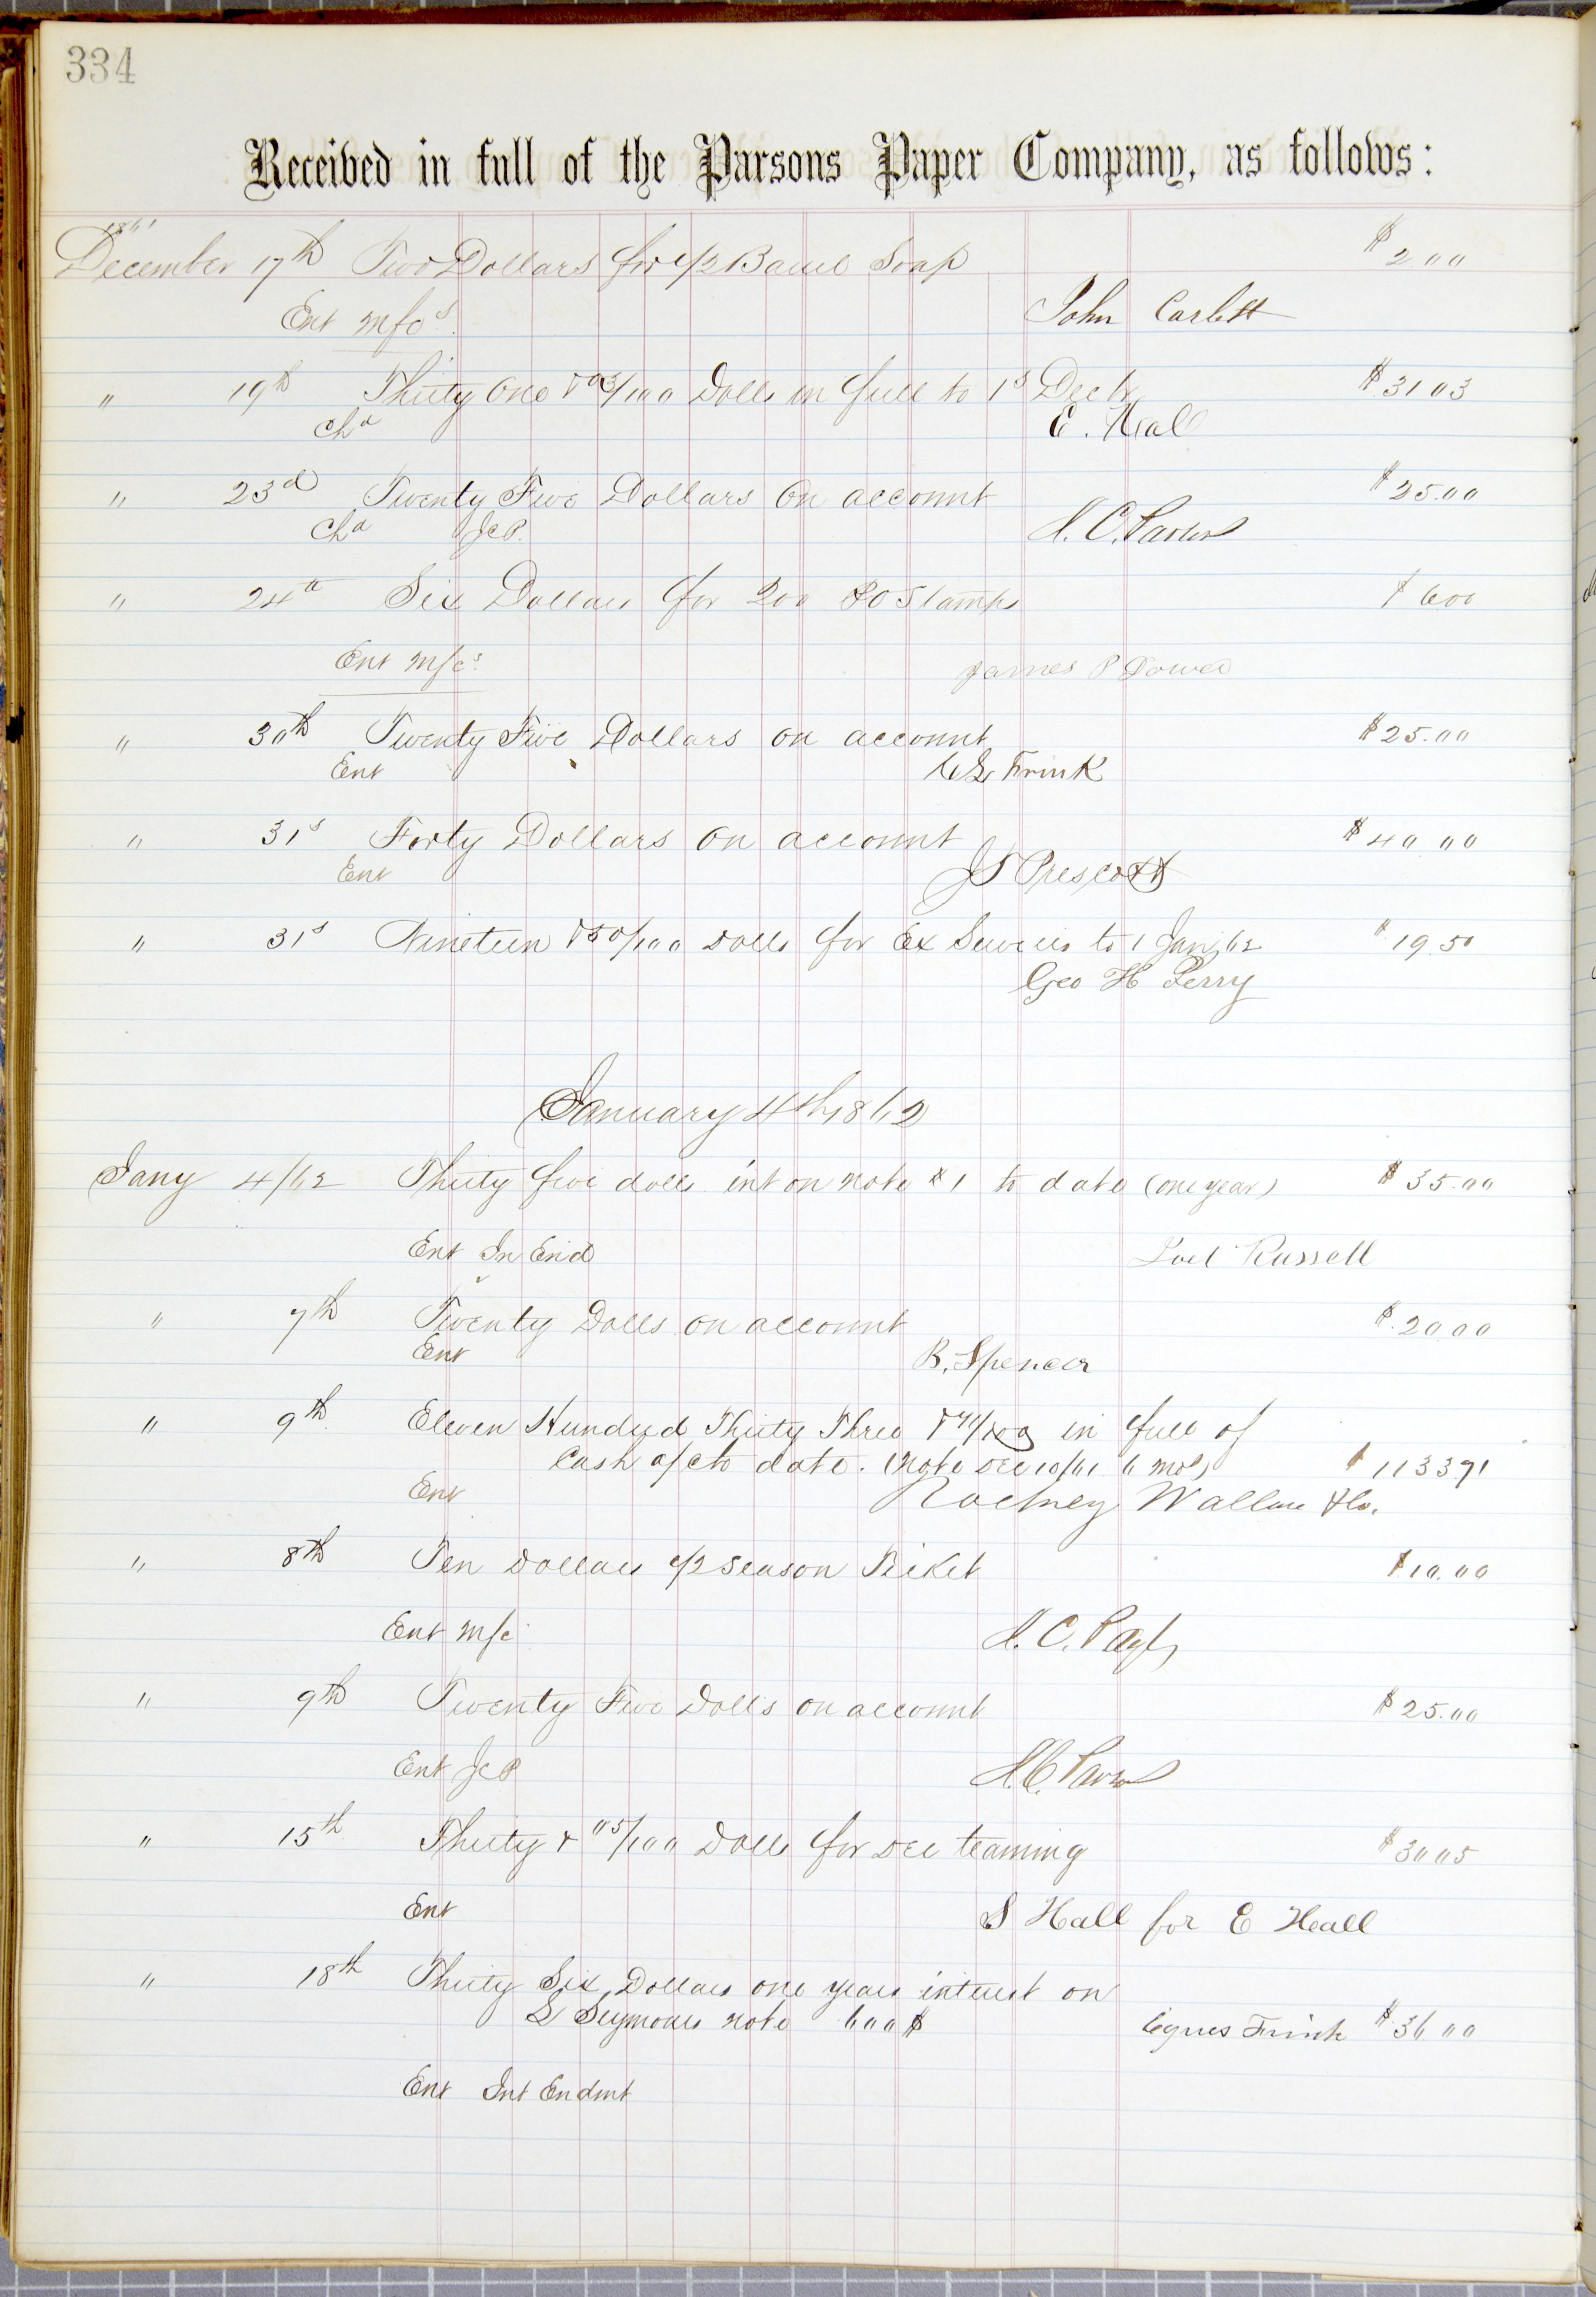 334
Received in full of the Parsons Paper Company, as follows:
1861
December 17th Two Dollars for 1/2 Barrel Soap $2 00
Ent mfcs. John
" 19th Thirty One & 03/100 Dolls in full to 1s Decbr $31 03
Chd E. Heal
" 23d Twenty Five Dollars On account $25.00
Chd JCP. H. C. Parsons
" 24th Six Dollars for 200 P O Stamps $6 00
Ent Mfcs. James P Power
" 30th Twenty Five Dollars on account $25.00
Ent Frink
" 31s Forty Dollars on account $40 00
Ent JS Prescott
" 31s Nineteen & 50/100 Dolls for Ex Services to 1 Jany 62 " 19.50
Geo H Perry
January 4th 1862
Jany 4/62 Thirty five dolls int on note # 1 to date (one year) $35.00
Ent In End Joel Russell
" 7th Twenty Dolls on account $20 00
Ent B. Spencer
" 9th Eleven Hundred Thirty Three & 71/100 in full of
Cash a/c to date. (Note Dec 10/61 6 mos) $1133 71
Ent Rodney Wallace & Co.
" 8th Ten Dollars 1/2 Season Ticket $10.00
Ent Mfc H. C.
" 9th Twenty Five Dolls on account $25.00
Ent JCP H.C. Parsons
" 15th Thirty & 05/100 Dolls for Dec teaming $30 05
Ent S Hall for E Heall
" 18th Thirty Six Dollars one years interest on
L Seymours note 600$ Cyrus Frink $36 00
Ent Int Endmt